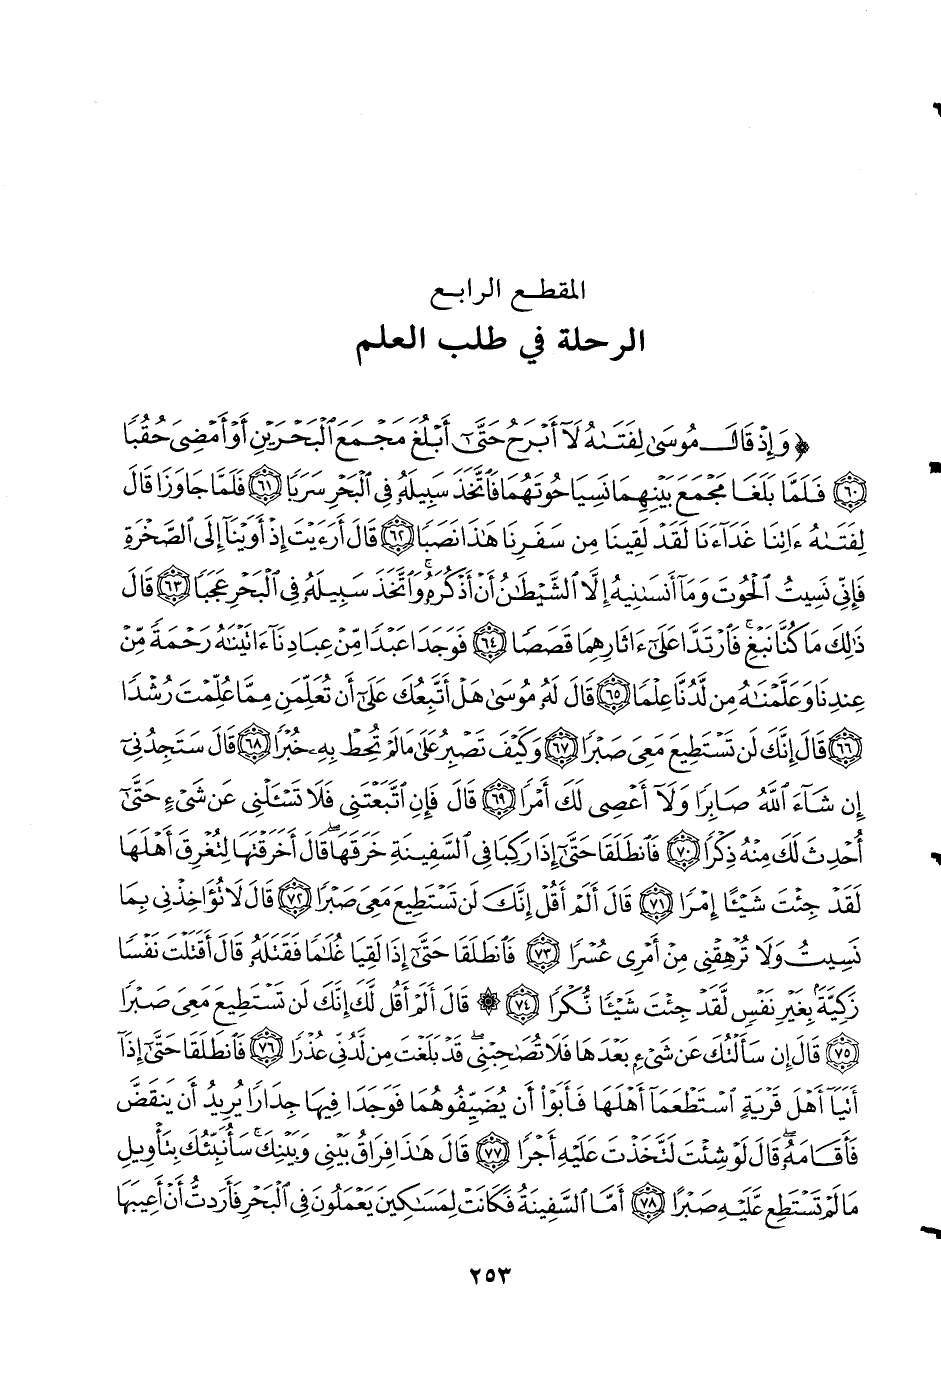 المقطع الرابع
الرحلة في طلب العلم
﴿ وَإِذْ قَالَ مُوسَىٰ لِفَتَىٰهُ لَآ أَبْرَحُ حَتَّىٰٓ أَبْلُغَ مَجْمَعَ ٱلْبَحْرَيْنِ أَوْ أَمْضِىَ حُقُبًا
٦٠ فَلَمَّا بَلَغَا مَجْمَعَ بَيْنِهِمَا نَسِيَا حُوتَهُمَا فَٱتَّخَذَ سَبِيلَهُۥ فِى ٱلْبَحْرِ سَرَبًا ٦١ فَلَمَّا جَاوَزَا قَالَ
لِفَتَىٰهُ ءَاتِنَا غَدَآءَنَا لَقَدْ لَقِينَا مِن سَفَرِنَا هَـٰذَا نَصَبًا ٦٢ قَالَ أَرَءَيْتَ إِذْ أَوَيْنَآ إِلَى ٱلصَّخْرَةِ
فَإِنِّى نَسِيتُ ٱلْحُوتَ وَمَآ أَنسَىٰنِيهُ إِلَّا ٱلشَّيْطَـٰنُ أَنْ أَذْكُرَهُۥۚ وَٱتَّخَذَ سَبِيلَهُۥ فِى ٱلْبَحْرِ عَجَبًا ٦٣ قَالَ
ذَٰلِكَ مَا كُنَّا نَبْغِۚ فَٱرْتَدَّا عَلَىٰٓ ءَاثَارِهِمَا قَصَصًا ٦٤ فَوَجَدَا عَبْدًا مِّنْ عِبَادِنَآ ءَاتَيْنَـٰهُ رَحْمَةً مِّنْ
عِندِنَا وَعَلَّمْنَـٰهُ مِن لَّدُنَّا عِلْمًا ٦٥ قَالَ لَهُۥ مُوسَىٰ هَلْ أَتَّبِعُكَ عَلَىٰٓ أَن تُعَلِّمَنِ مِمَّا عُلِّمْتَ رُشْدًا
٦٦ قَالَ إِنَّكَ لَن تَسْتَطِيعَ مَعِىَ صَبْرًا ٦٧ وَكَيْفَ تَصْبِرُ عَلَىٰ مَا لَمْ تُحِطْ بِهِۦ خُبْرًا ٦٨ قَالَ سَتَجِدُنِىٓ
إِن شَآءَ ٱللَّهُ صَابِرًا وَلَآ أَعْصِى لَكَ أَمْرًا ٦٩ قَالَ فَإِنِ ٱتَّبَعْتَنِى فَلَا تَسْـَٔلْنِى عَن شَىْءٍ حَتَّىٰٓ
أُحْدِثَ لَكَ مِنْهُ ذِكْرًا ٧٠ فَٱنطَلَقَا حَتَّىٰٓ إِذَا رَكِبَا فِى ٱلسَّفِينَةِ خَرَقَهَاۖ قَالَ أَخَرَقْتَهَا لِتُغْرِقَ أَهْلَهَا
لَقَدْ جِئْتَ شَيْـًٔا إِمْرًا ٧١ قَالَ أَلَمْ أَقُلْ إِنَّكَ لَن تَسْتَطِيعَ مَعِىَ صَبْرًا ٧٢ قَالَ لَا تُؤَاخِذْنِى بِمَا
نَسِيتُ وَلَا تُرْهِقْنِى مِنْ أَمْرِى عُسْرًا ٧٣ فَٱنطَلَقَا حَتَّىٰٓ إِذَا لَقِيَا غُلَـٰمًا فَقَتَلَهُۥ قَالَ أَقَتَلْتَ نَفْسًا
زَكِيَّةًۢ بِغَيْرِ نَفْسٍ لَّقَدْ جِئْتَ شَيْـًٔا نُّكْرًا ٧٤ ۞ قَالَ أَلَمْ أَقُل لَّكَ إِنَّكَ لَن تَسْتَطِيعَ مَعِىَ صَبْرًا
٧٥ قَالَ إِن سَأَلْتُكَ عَن شَىْءٍۭ بَعْدَهَا فَلَا تُصَـٰحِبْنِىۖ قَدْ بَلَغْتَ مِن لَّدُنِّى عُذْرًا ٧٦ فَٱنطَلَقَا حَتَّىٰٓ إِذَآ
أَتَيَآ أَهْلَ قَرْيَةٍ ٱسْتَطْعَمَآ أَهْلَهَا فَأَبَوْا۟ أَن يُضَيِّفُوهُمَا فَوَجَدَا فِيهَا جِدَارًا يُرِيدُ أَن يَنقَضَّ
فَأَقَامَهُۥۖ قَالَ لَوْ شِئْتَ لَتَّخَذْتَ عَلَيْهِ أَجْرًا ٧٧ قَالَ هَـٰذَا فِرَاقُ بَيْنِى وَبَيْنِكَۚ سَأُنَبِّئُكَ بِتَأْوِيلِ
مَا لَمْ تَسْتَطِع عَّلَيْهِ صَبْرًا ٧٨ أَمَّا ٱلسَّفِينَةُ فَكَانَتْ لِمَسَـٰكِينَ يَعْمَلُونَ فِى ٱلْبَحْرِ فَأَرَدتُّ أَنْ أَعِيبَهَا
٢٥٣